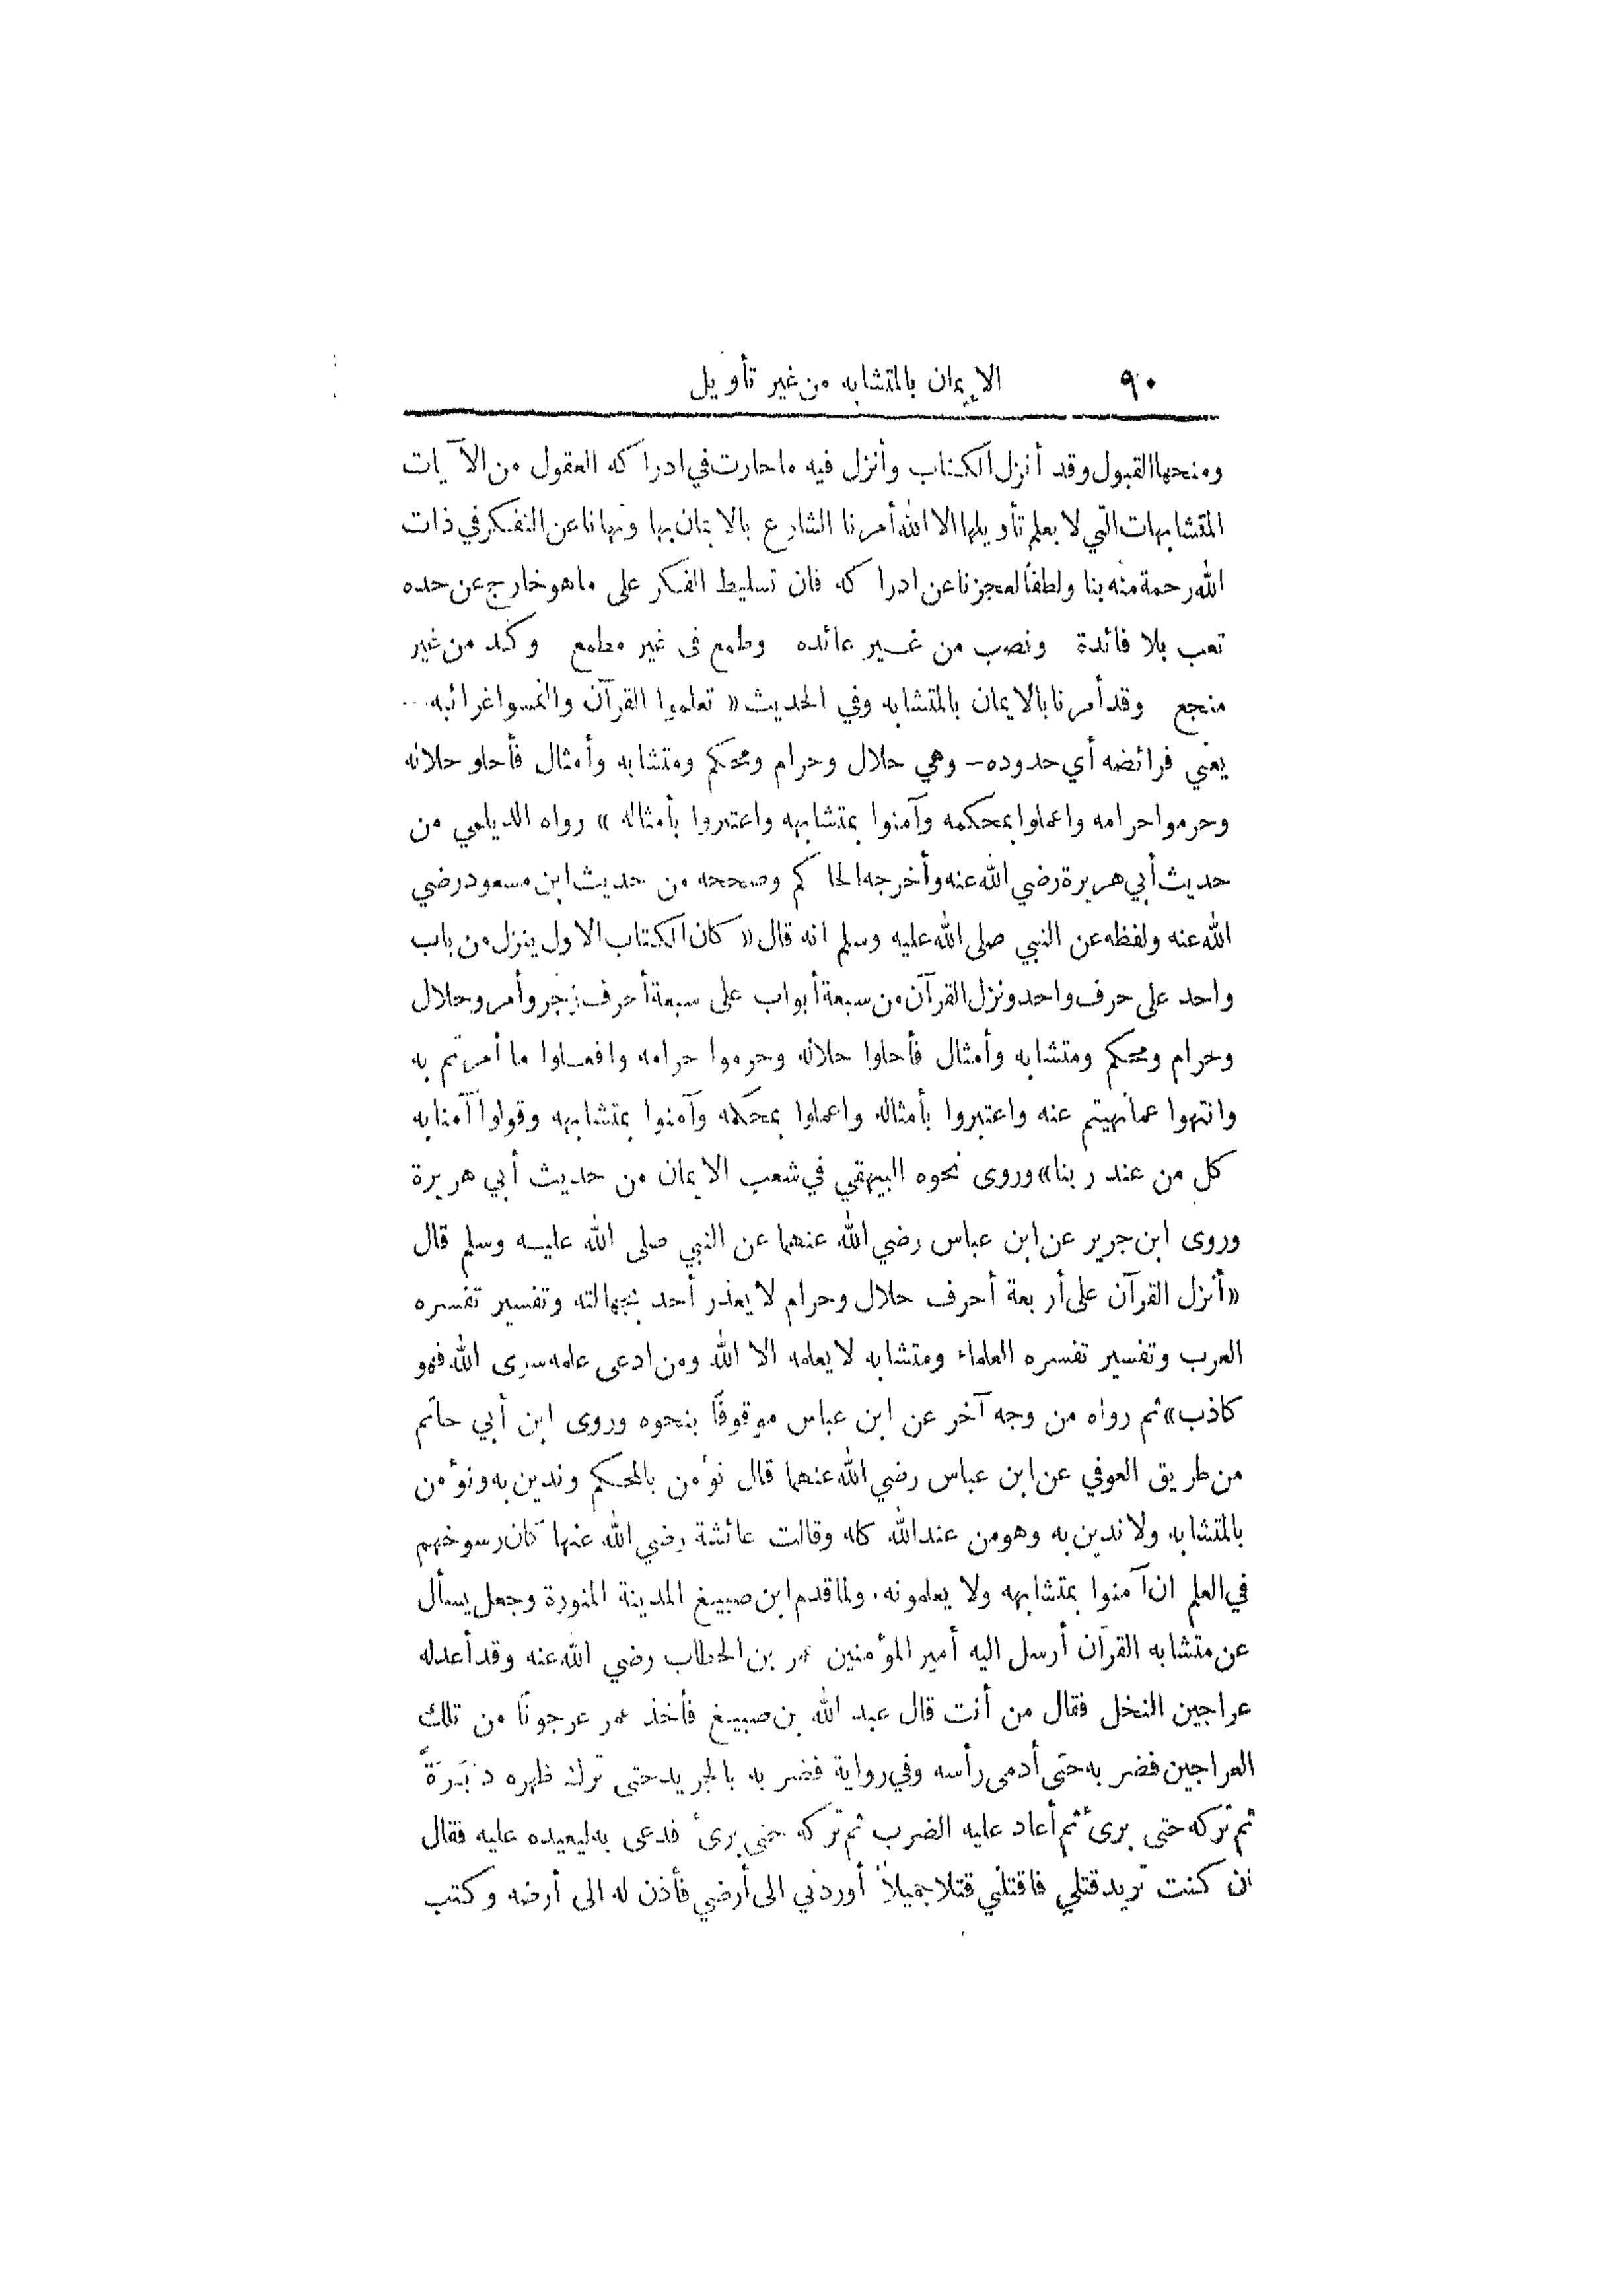 ٩٠ الإيمان بالمتشابه من غير تأويل
ومنحها القبول وقد أنزل الكتاب وأنزل فيه ما حارت في ادراكه العقول من الآيات
المتشابهات التي لا يعلم تأويلها الا الله أمرنا الشارع بالايمان بها ونهانا عن التفكر في ذات
الله رحمة منه بنا ولطفاً لعجزنا عن ادراكه فان تسليط الفكر على ما هو خارج عن حده
تعب بلا فائدة ونصب من غير عائده وطمع فى غير مطمع وكد من غير
منجع وقد أمرنا بالايمان بالمتشابه وفي الحديث « تعلموا القرآن والتمسوا غرائبه ...
يعني فرائضه أي حدوده – وهي حلال وحرام ومحكم ومتشابه وأمثال فأحلو حلاله
وحرموا حرامه واعملوا بمحكمه وآمنوا بمتشابهه واعتبروا بأمثاله » رواه الديلمي من
حديث أبي هريرة رضي الله عنه وأخرجه الحاكم وصححه من حديث ابن مسعود رضي
الله عنه ولفظه عن النبي صلى الله عليه وسلم انه قال « كان الكتاب الاول ينزل من باب
واحد على حرف واحد ونزل القرآن من سبعة أبواب على سبعة أحرف زجر وأمر وحلال
وحرام ومحكم ومتشابه وأمثال فأحلوا حلاله وحرموا حرامه وافعلوا ما أمرتم به
وانتهوا عما نهيتم عنه واعتبروا بأمثاله واعملوا بمحكمه وآمنوا بمتشابهه وقولوا آمنا به
كل من عند ربنا» وروى نحوه البيهقي في شعب الايمان من حديث أبي هريرة
وروى ابن جرير عن ابن عباس رضي الله عنهما عن النبي صلى الله عليه وسلم قال
«أنزل القرآن على أربعة أحرف حلال وحرام لا يعذر أحد بجهالته وتفسير تفسره
العرب وتفسير تفسره العلماء ومتشابه لا يعلمه الا الله ومن ادعى علمه سوى الله فهو
كاذب» ثم رواه من وجه آخر عن ابن عباس موقوفاً بنحوه وروى ابن أبي حاتم
من طريق العوفي عن ابن عباس رضي الله عنهما قال نؤمن بالمحكم وندين به ونؤمن
بالمتشابه ولا ندين به وهو من عند الله كله وقالت عائشة رضي الله عنها كان رسوخهم
في العلم ان آمنوا بمتشابهه ولا يعلمونه. ولما قدم ابن صبيغ المدينة المنورة وجعل يسأل
عن متشابه القرآن أرسل اليه أمير المؤمنين عمر بن الخطاب رضي الله عنه وقد أعد له
عراجين النخل فقال من أنت قال عبد الله بن صبيغ فأخذ عمر عرجوناً من تلك
العراجين فضربه حتى أدمى رأسه وفي رواية فضربه بالجريد حتى ترك ظهره دَبَرَةً
ثم تركه حتى برئ ثم أعاد عليه الضرب ثم تركه حتى برئ فدعى به ليعيده عليه فقال
ان كنت تريد قتلي فاقتلني قتلا جميلاً أوردني الى أرضي فأذن له الى أرضه وكتب